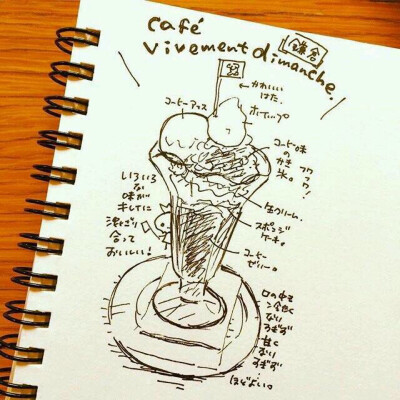 café
vivement dimanche.
鎌倉
かわいい
はた。
コーヒーアイス
ホイップ
コーヒー味
のかき
氷。
生クリーム。
スポンジ
ケーキ。
コーヒー
ゼリー。
いろいろ
な
味が
キレイに
混ざり
合って
おいしい!
口の中で
冷たく
ない
すぎず
甘く
ない
すぎず
ほどよい。